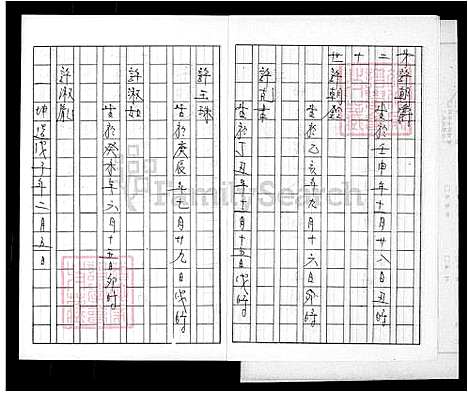 許朝爵
二十
生於壬申年十一月廿八日丑時
廿 許朝銓
生於乙亥年九月十六日卯時
許
生於丁丑年十一月十五日戌時
許玉珠
生於庚辰年七月廿九日戌時
許淑如
生於癸未年六月十五日卯時
許淑
坤 戊子年二月五日
FamilySearch